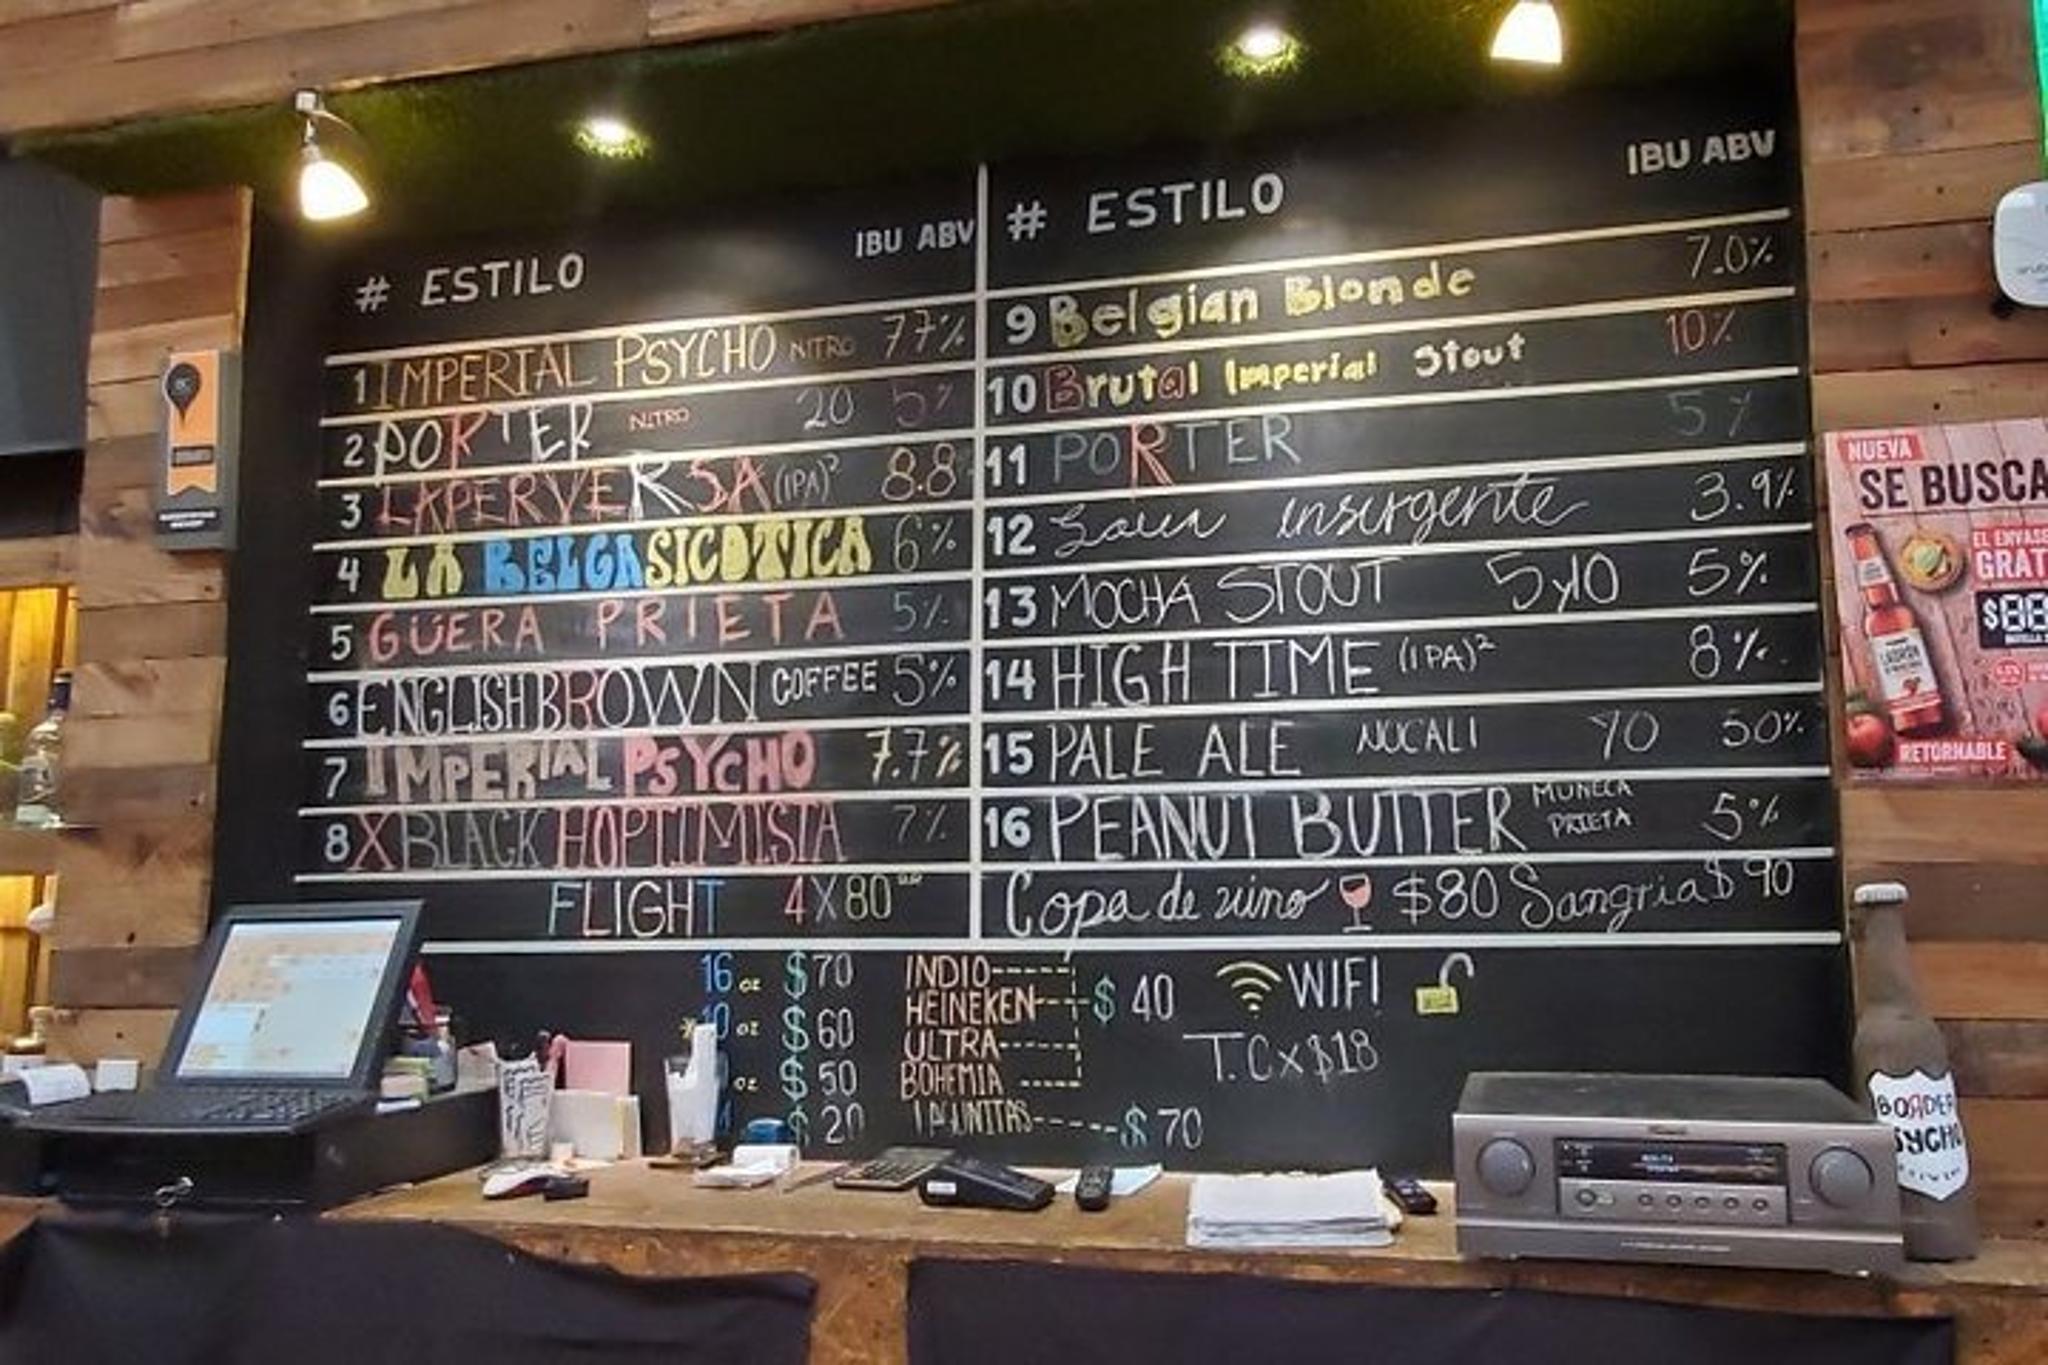 # ESTILO IBU ABV
1 IMPERIAL PSYCHO NITRO 77%
2 PORTER NITRO 20 5%
3 LAPERVERSA (IPA)² 8.8
4 LA BELGASICOTICA 6%
5 GÜERA PRIETA 5%
6 ENGLISH BROWN COFFEE 5%
7 IMPERIAL PSYCHO 7.7%
8 X BLACK HOPTIMISTA 7%
FLIGHT 4X80
# ESTILO IBU ABV
9 Belgian Blonde 7.0%
10 Brutal Imperial Stout 10%
11 PORTER 5%
12 insurgente 3.9%
13 MOCHA STOUT 5y10 5%
14 HIGH TIME (IPA)² 8%
15 PALE ALE NOCALI 50%
16 PEANUT BUTTER MUÑECA PRIETA 5%
Copa de vino $80 Sangria $90
16 oz $70
10 oz $60
oz $50
$ 20
INDIO
HEINEKEN $ 40
ULTRA
BOHEMIA
LAGUNITAS $ 70
WIFI!
T.C x $18
NUEVA
SE BUSCA
EL ENVASE
GRAT
$88
LADRÓN
RETORNABLE
BORDER
PSYCHO